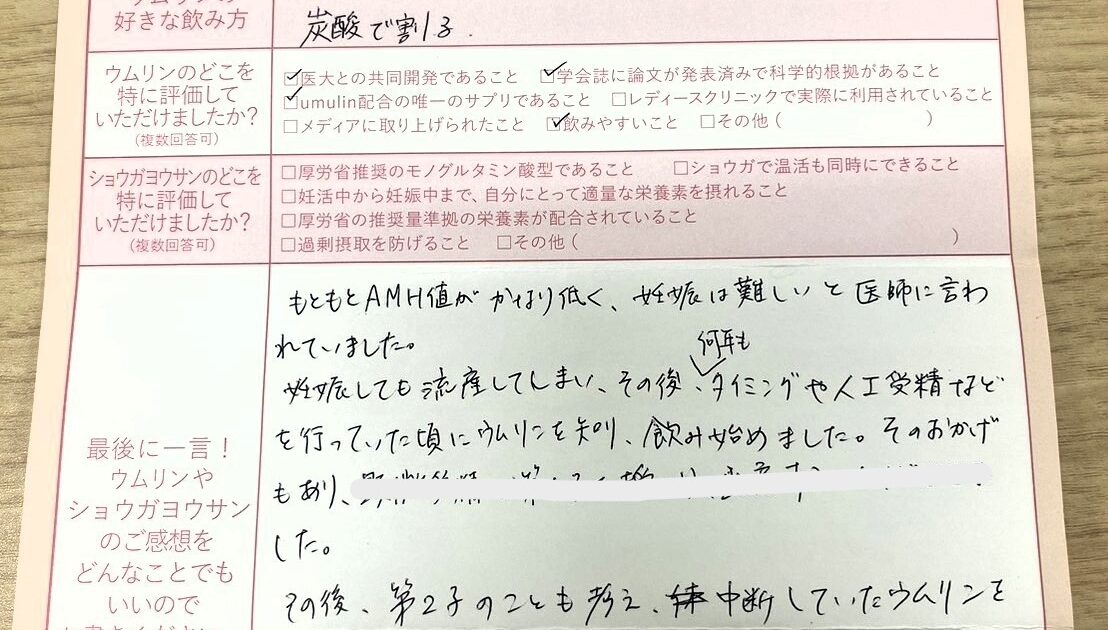 好きな飲み方
炭酸で割る.
ウムリンのどこを
特に評価して
いただけましたか?
(複数回答可)
☑医大との共同開発であること ☑学会誌に論文が発表済みで科学的根拠があること
☑umulin配合の唯一のサプリであること □レディースクリニックで実際に利用されていること
□メディアに取り上げられたこと ☑飲みやすいこと □その他( )
ショウガヨウサンのどこを
特に評価して
いただけましたか?
(複数回答可)
□厚労省推奨のモノグルタミン酸型であること □ショウガで温活も同時にできること
□妊活中から妊娠中まで、自分にとって適量な栄養素を摂れること
□厚労省の推奨量準拠の栄養素が配合されていること
□過剰摂取を防げること □その他( )
最後に一言!
ウムリンや
ショウガヨウサン
のご感想を
どんなことでも
いいので
もともとAMH値がかなり低く、妊娠は難しいと医師に言わ
れていました。
何年も
妊娠しても流産してしまい、その後、タイミングや人工受精など
を行っていた頃にウムリンを知り、飲み始めました。そのおかげ
もあり、
した。
その後、第2子のことも考え、中断していたウムリンを